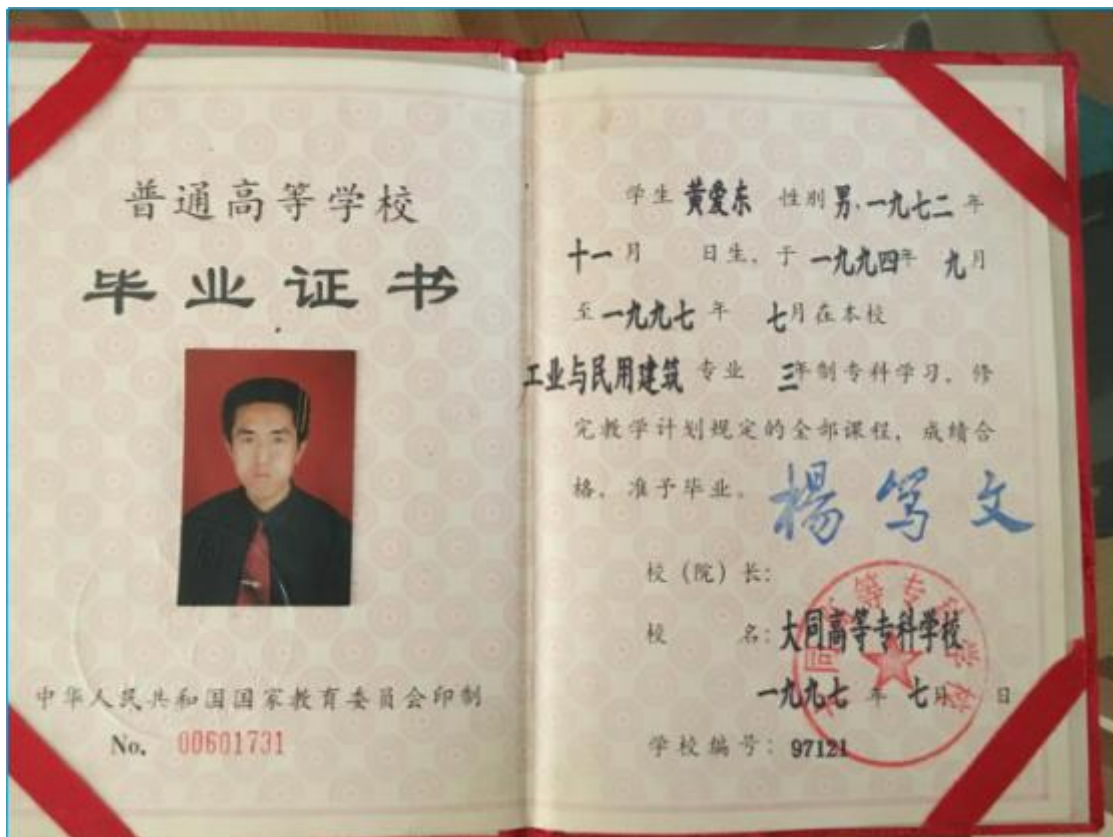 普通高等学校
毕业证书
中华人民共和国国家教育委员会印制
No. 00601731
学生 黄爱东 性别 男, 一九七二 年
十一 月 日生, 于 一九九四 年 九 月
至 一九九七 年 七 月在本校
工业与民用建筑 专业 三 年制专科学习, 修
完教学计划规定的全部课程, 成绩合
格, 准予毕业。
杨笃文
校(院)长:
校 名: 大同高等专科学校
一九九七 年 七 月 日
学校编号: 97121
大同高等专科学校